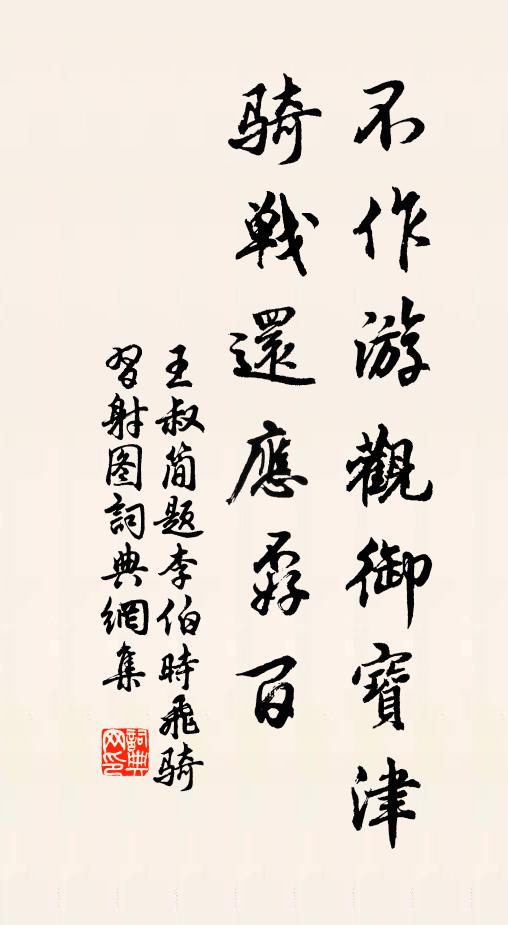 不作游觀御寶津
騎戰還應孬百
王叔简题李伯時飛騎
習射图詞典網集
詞典
网印